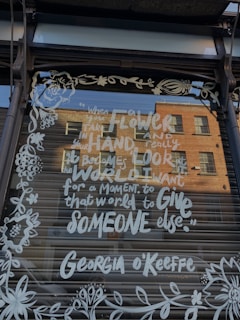 “WHEN
you FLOWER
TAKE AND
HAND, really
it BECOMES LOOK
WORLD WANT
for a MOMENT. to
that world to GIVE
SOMEONE else.”
GEORGIA O'KEEFFE